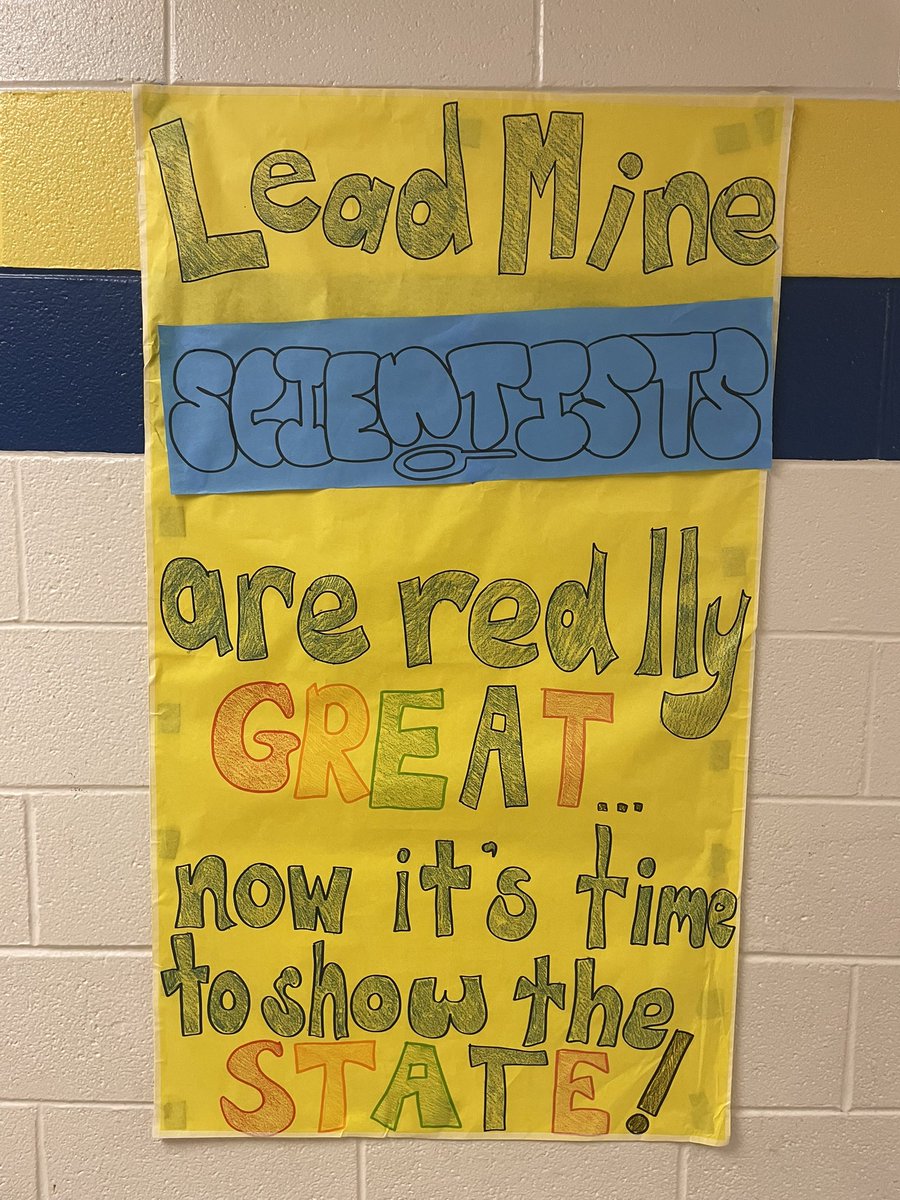 Lead Mine
SCIENTISTS
are red lly
GREAT...
now it's time
to show the
STATE!